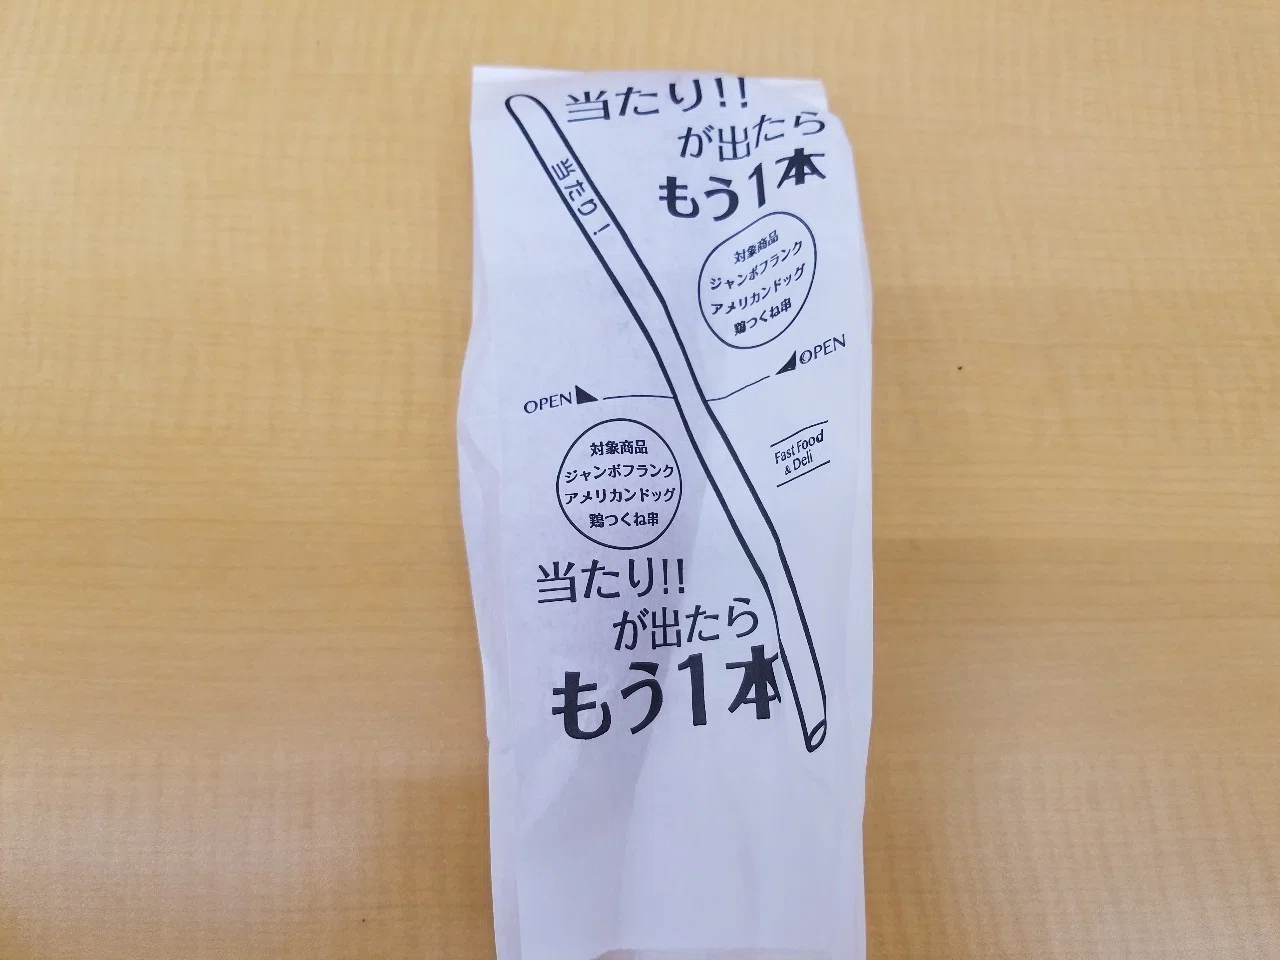 当たり!!
が出たら
もう1本
当たり!
対象商品
ジャンボフランク
アメリカンドッグ
鶏つくね串
OPEN
OPEN
Fast Food
& Deli
対象商品
ジャンボフランク
アメリカンドッグ
鶏つくね串
当たり!!
が出たら
もう1本